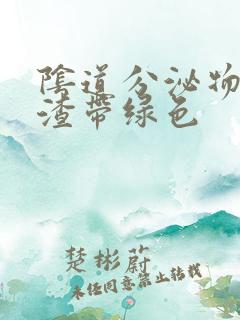 陰道分泌物
渣帶绿色
楚彬蔚
未经同意禁止转载